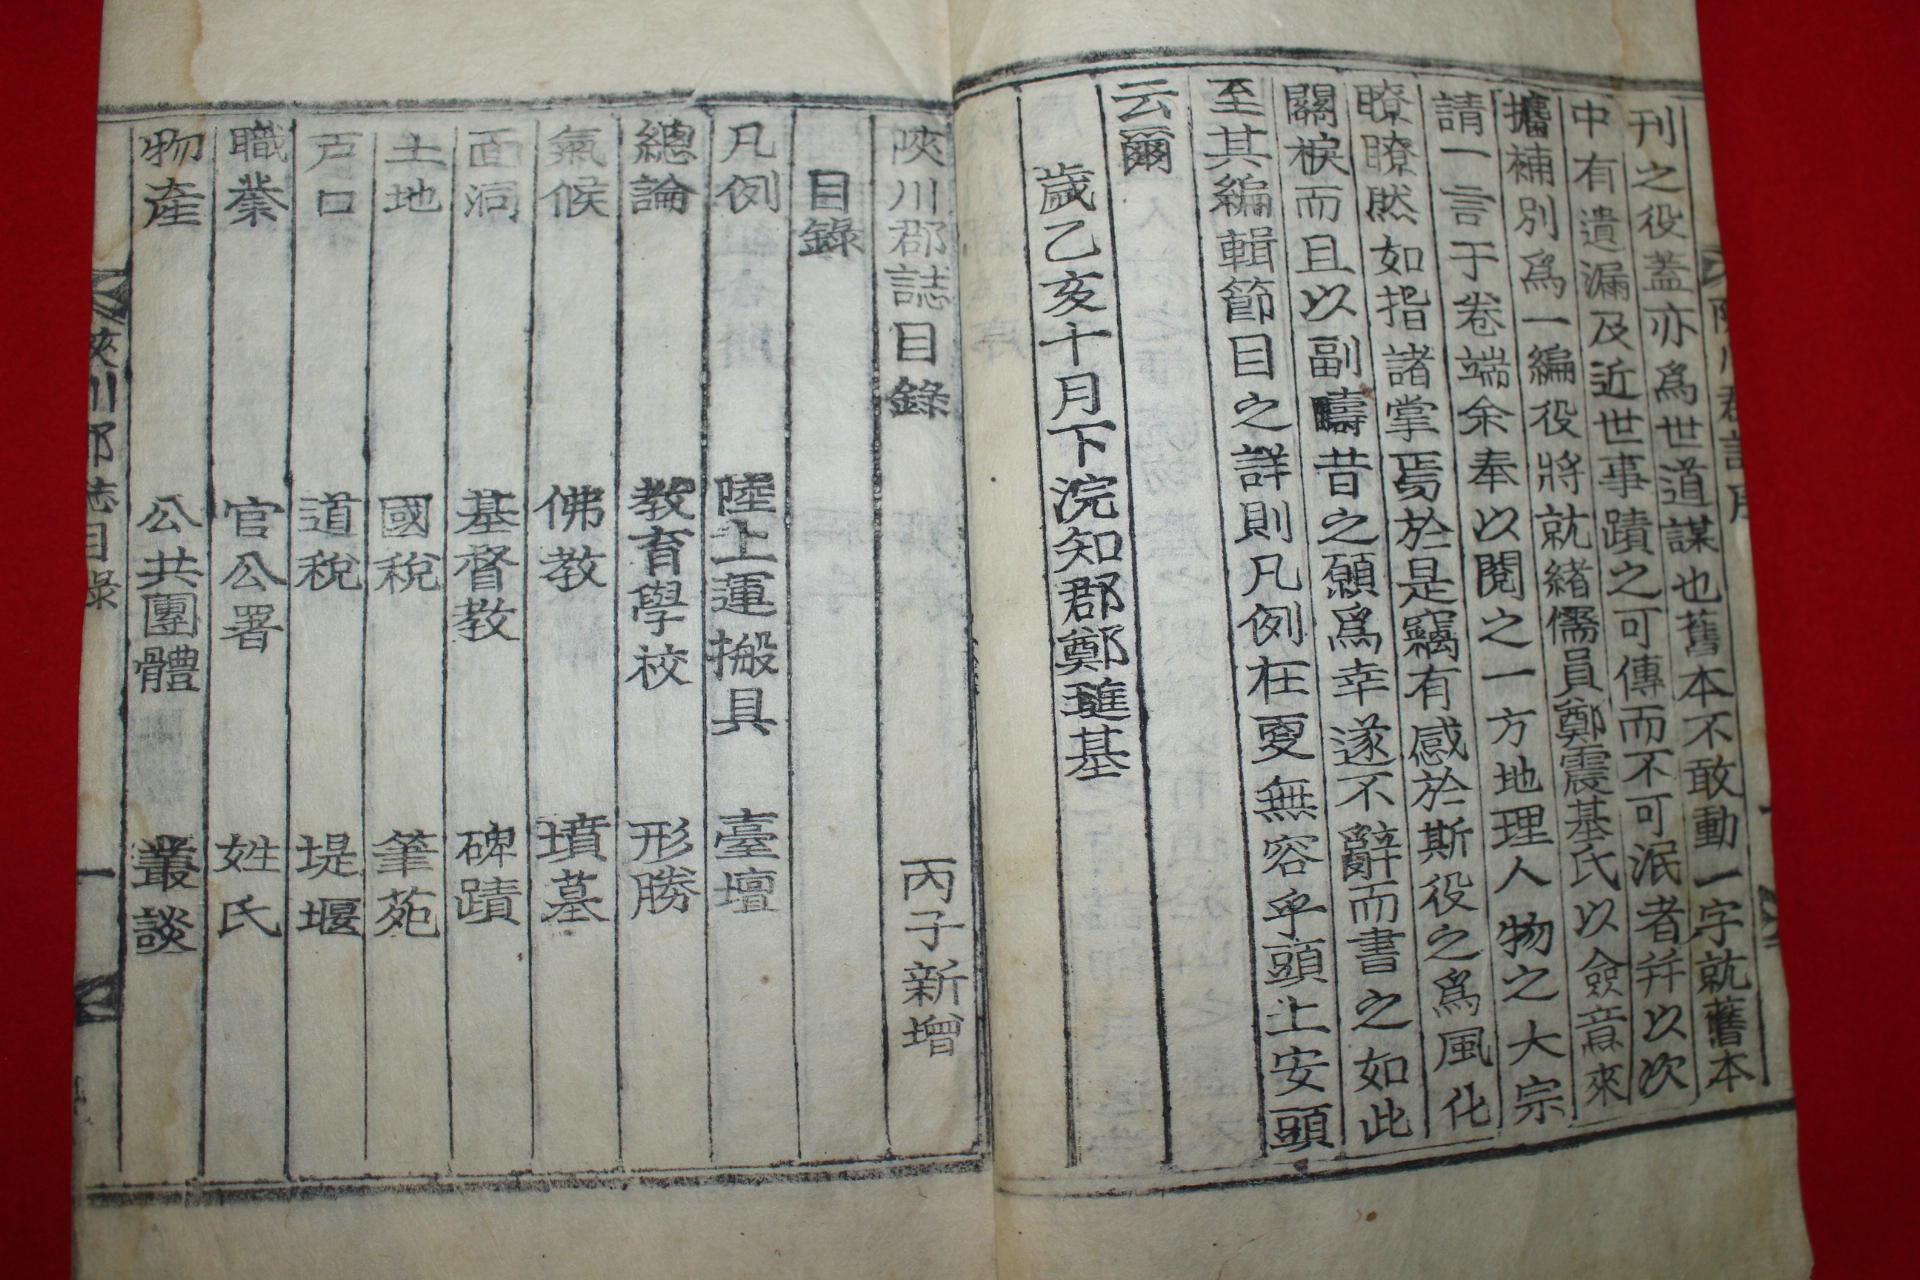 刊之役蓋亦爲世道謀也舊本不敢動一字就舊本
中有遺漏及近世事蹟之可傳而不可泯者幷以次
攜補別爲一編役將就緖儒員鄭震基氏以僉意來
請一言于卷端余奉以閱之一方地理人物之大宗
瞭瞭然如指諸掌焉於是竊有感於斯役之爲風化
關棙而且以副疇昔之願爲幸遂不辭而書之如此
至其編輯節目之詳則凡例在更無容乎頭上安頭
云爾
歲乙亥十月下浣知郡鄭璡基
陜川郡誌目錄 丙子新增
目錄
凡例 陸上運搬具 臺壇
總論 敎育學校 形勝
氣候 佛教 墳墓
面洞 基督教 碑蹟
土地 國稅 筆苑
戶口 道稅 堤堰
職業 官公署 姓氏
物產 公共團體 叢談
陜川郡誌目錄 一